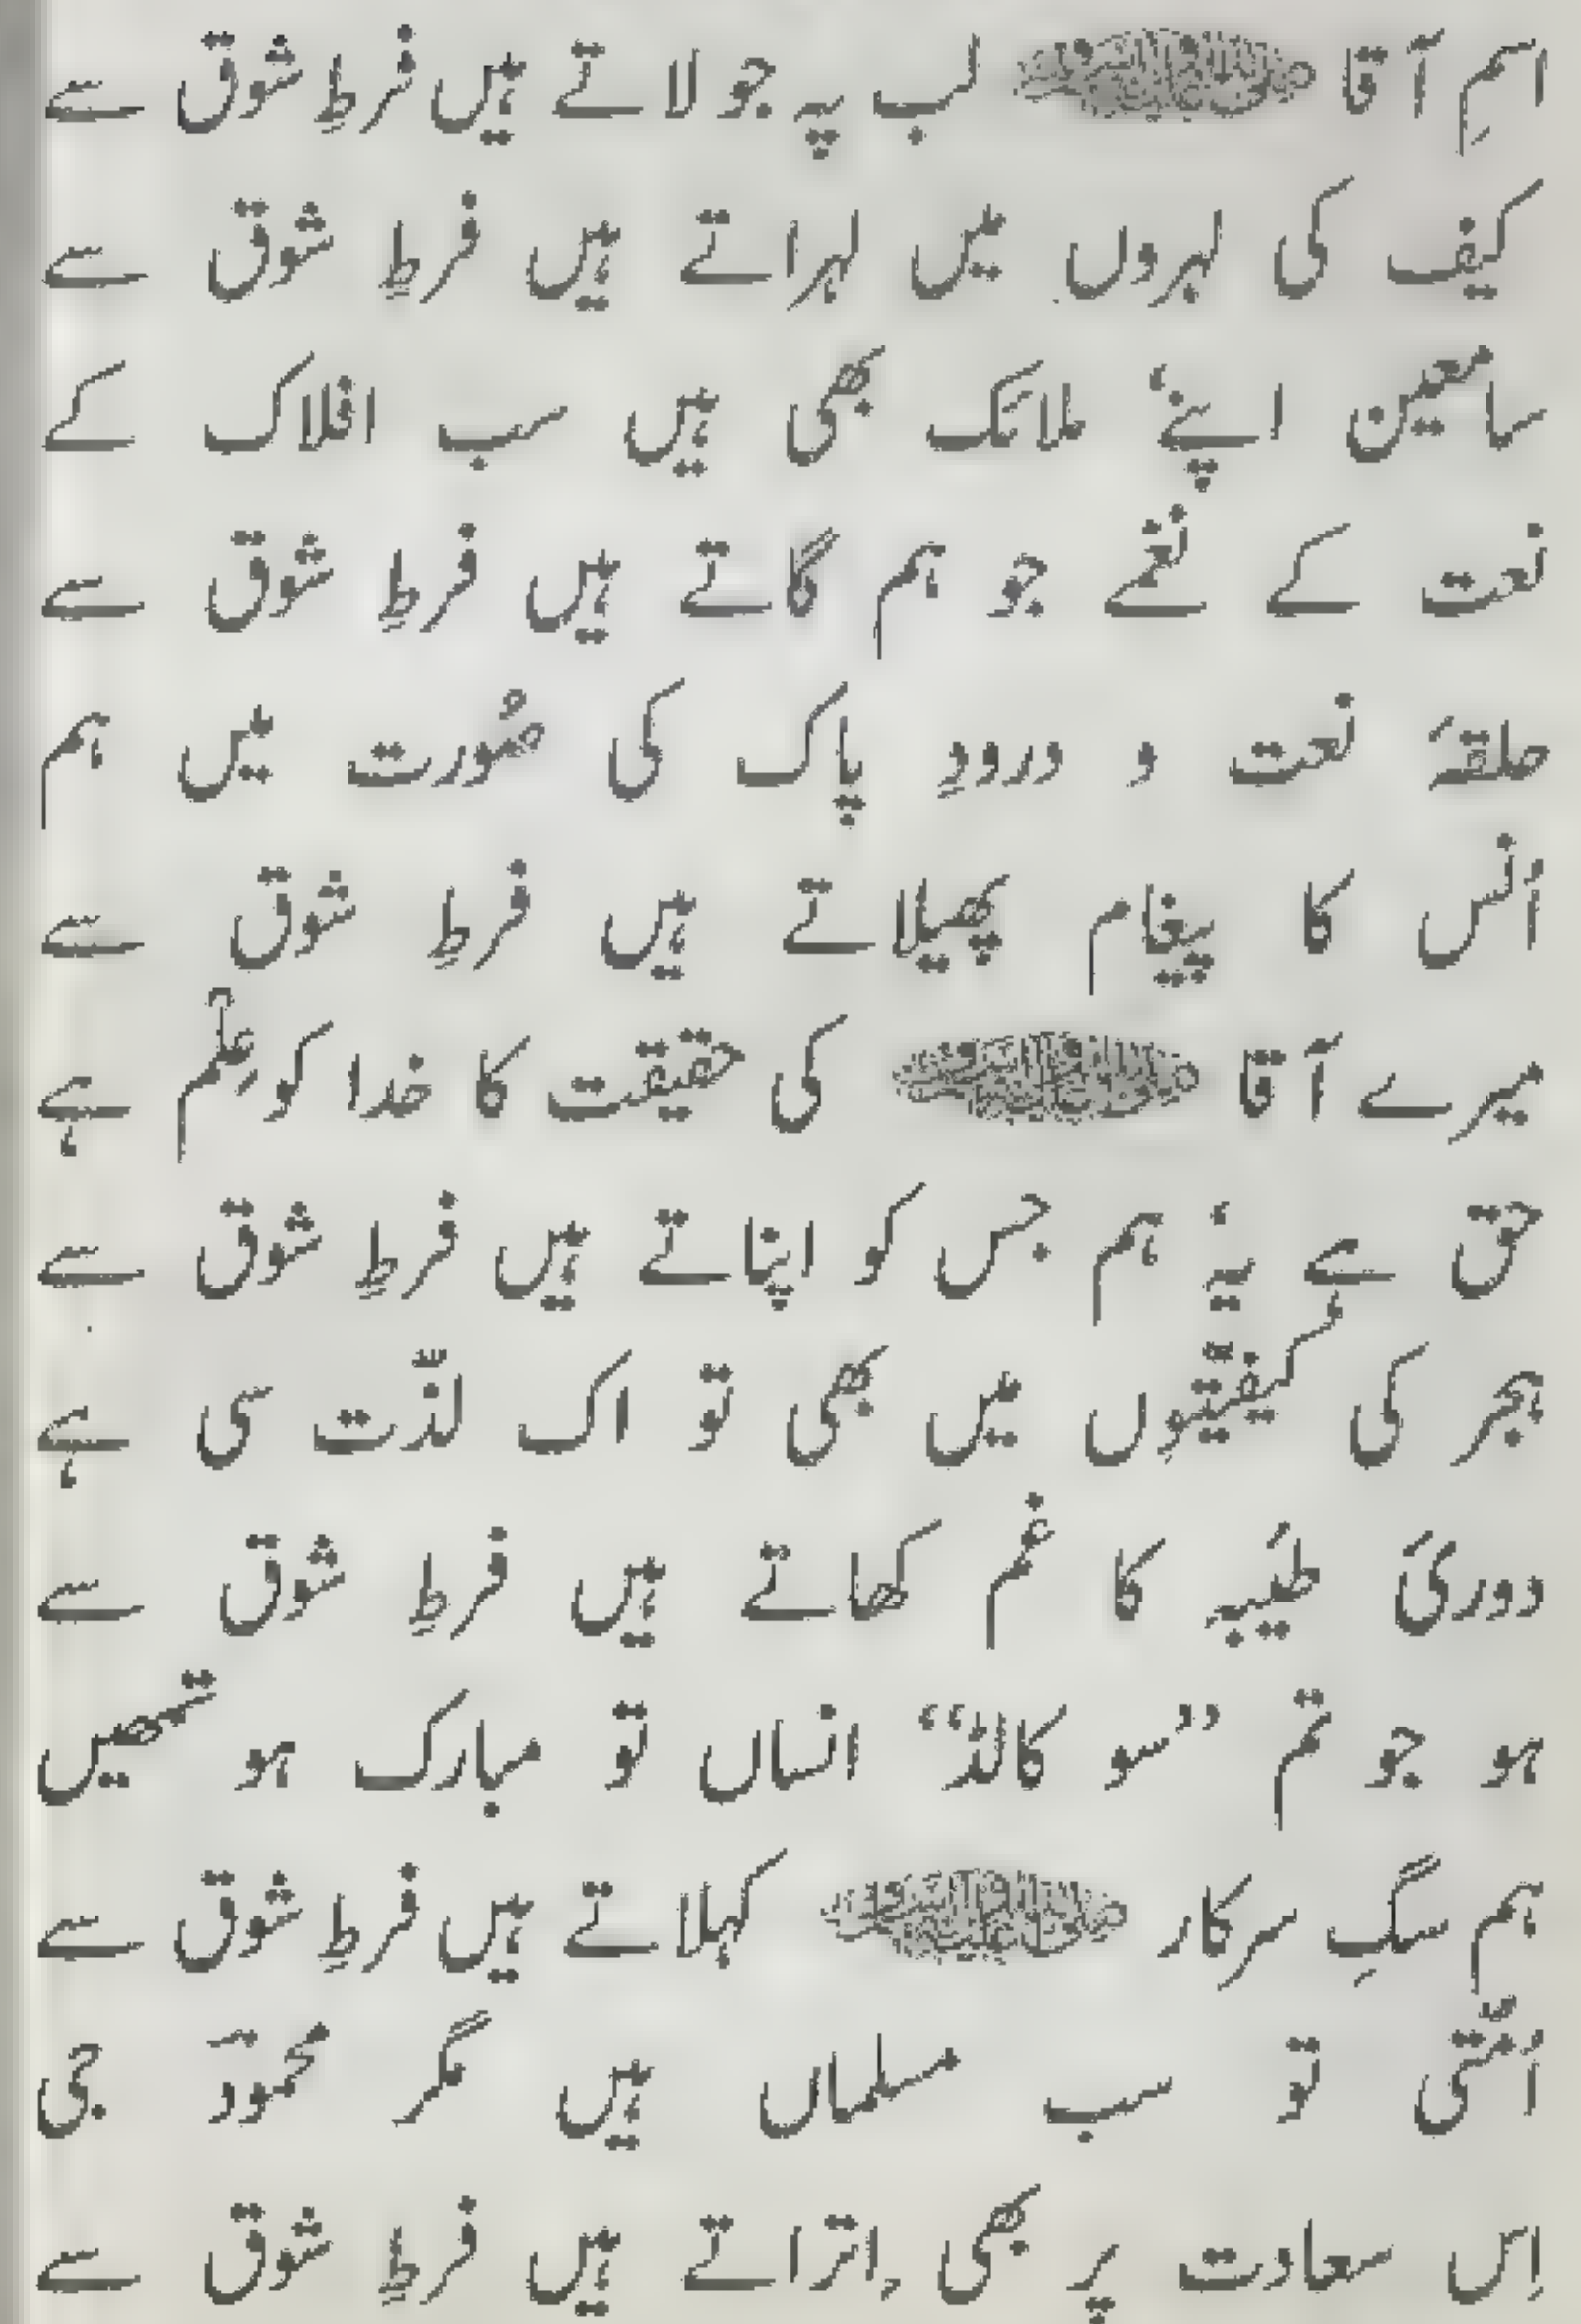 اسمِ آقا صلی اللہ علیہ وآلہ وسلم لب پہ جو لاتے ہیں فرطِ شوق سے
کیف کی لہروں میں لہراتے ہیں فرطِ شوق سے
سامعین اپنے، ملائک بھی ہیں سب افلاک کے
نعت کے نغمے جو ہم گاتے ہیں فرطِ شوق سے
حلقۂ نعت و درودِ پاک کی صُورت میں ہم
اُنس کا پیغام پھیلاتے ہیں فرطِ شوق سے
میرے آقا صلی اللہ علیہ وآلہ وسلم کی حقیقت کا خدا کو عِلْم ہے
حق ہے یہ، ہم جس کو اپناتے ہیں فرطِ شوق سے
ہجر کی کیفیّتوں میں بھی تو اک لذّت سی ہے
دوریَٔ طیَبہ کا غم کھاتے ہیں فرطِ شوق سے
ہو جو تم ”سو کالڈ“ انساں تو مبارک ہو تمھیں
ہم سگِ سرکار صلی اللہ علیہ وآلہ وسلم کہلاتے ہیں فرطِ شوق سے
اُمّتی تو سب مسلماں ہیں مگر محمودؔ جی
اِس سعادت پر بھی اِتراتے ہیں فرطِ شوق سے